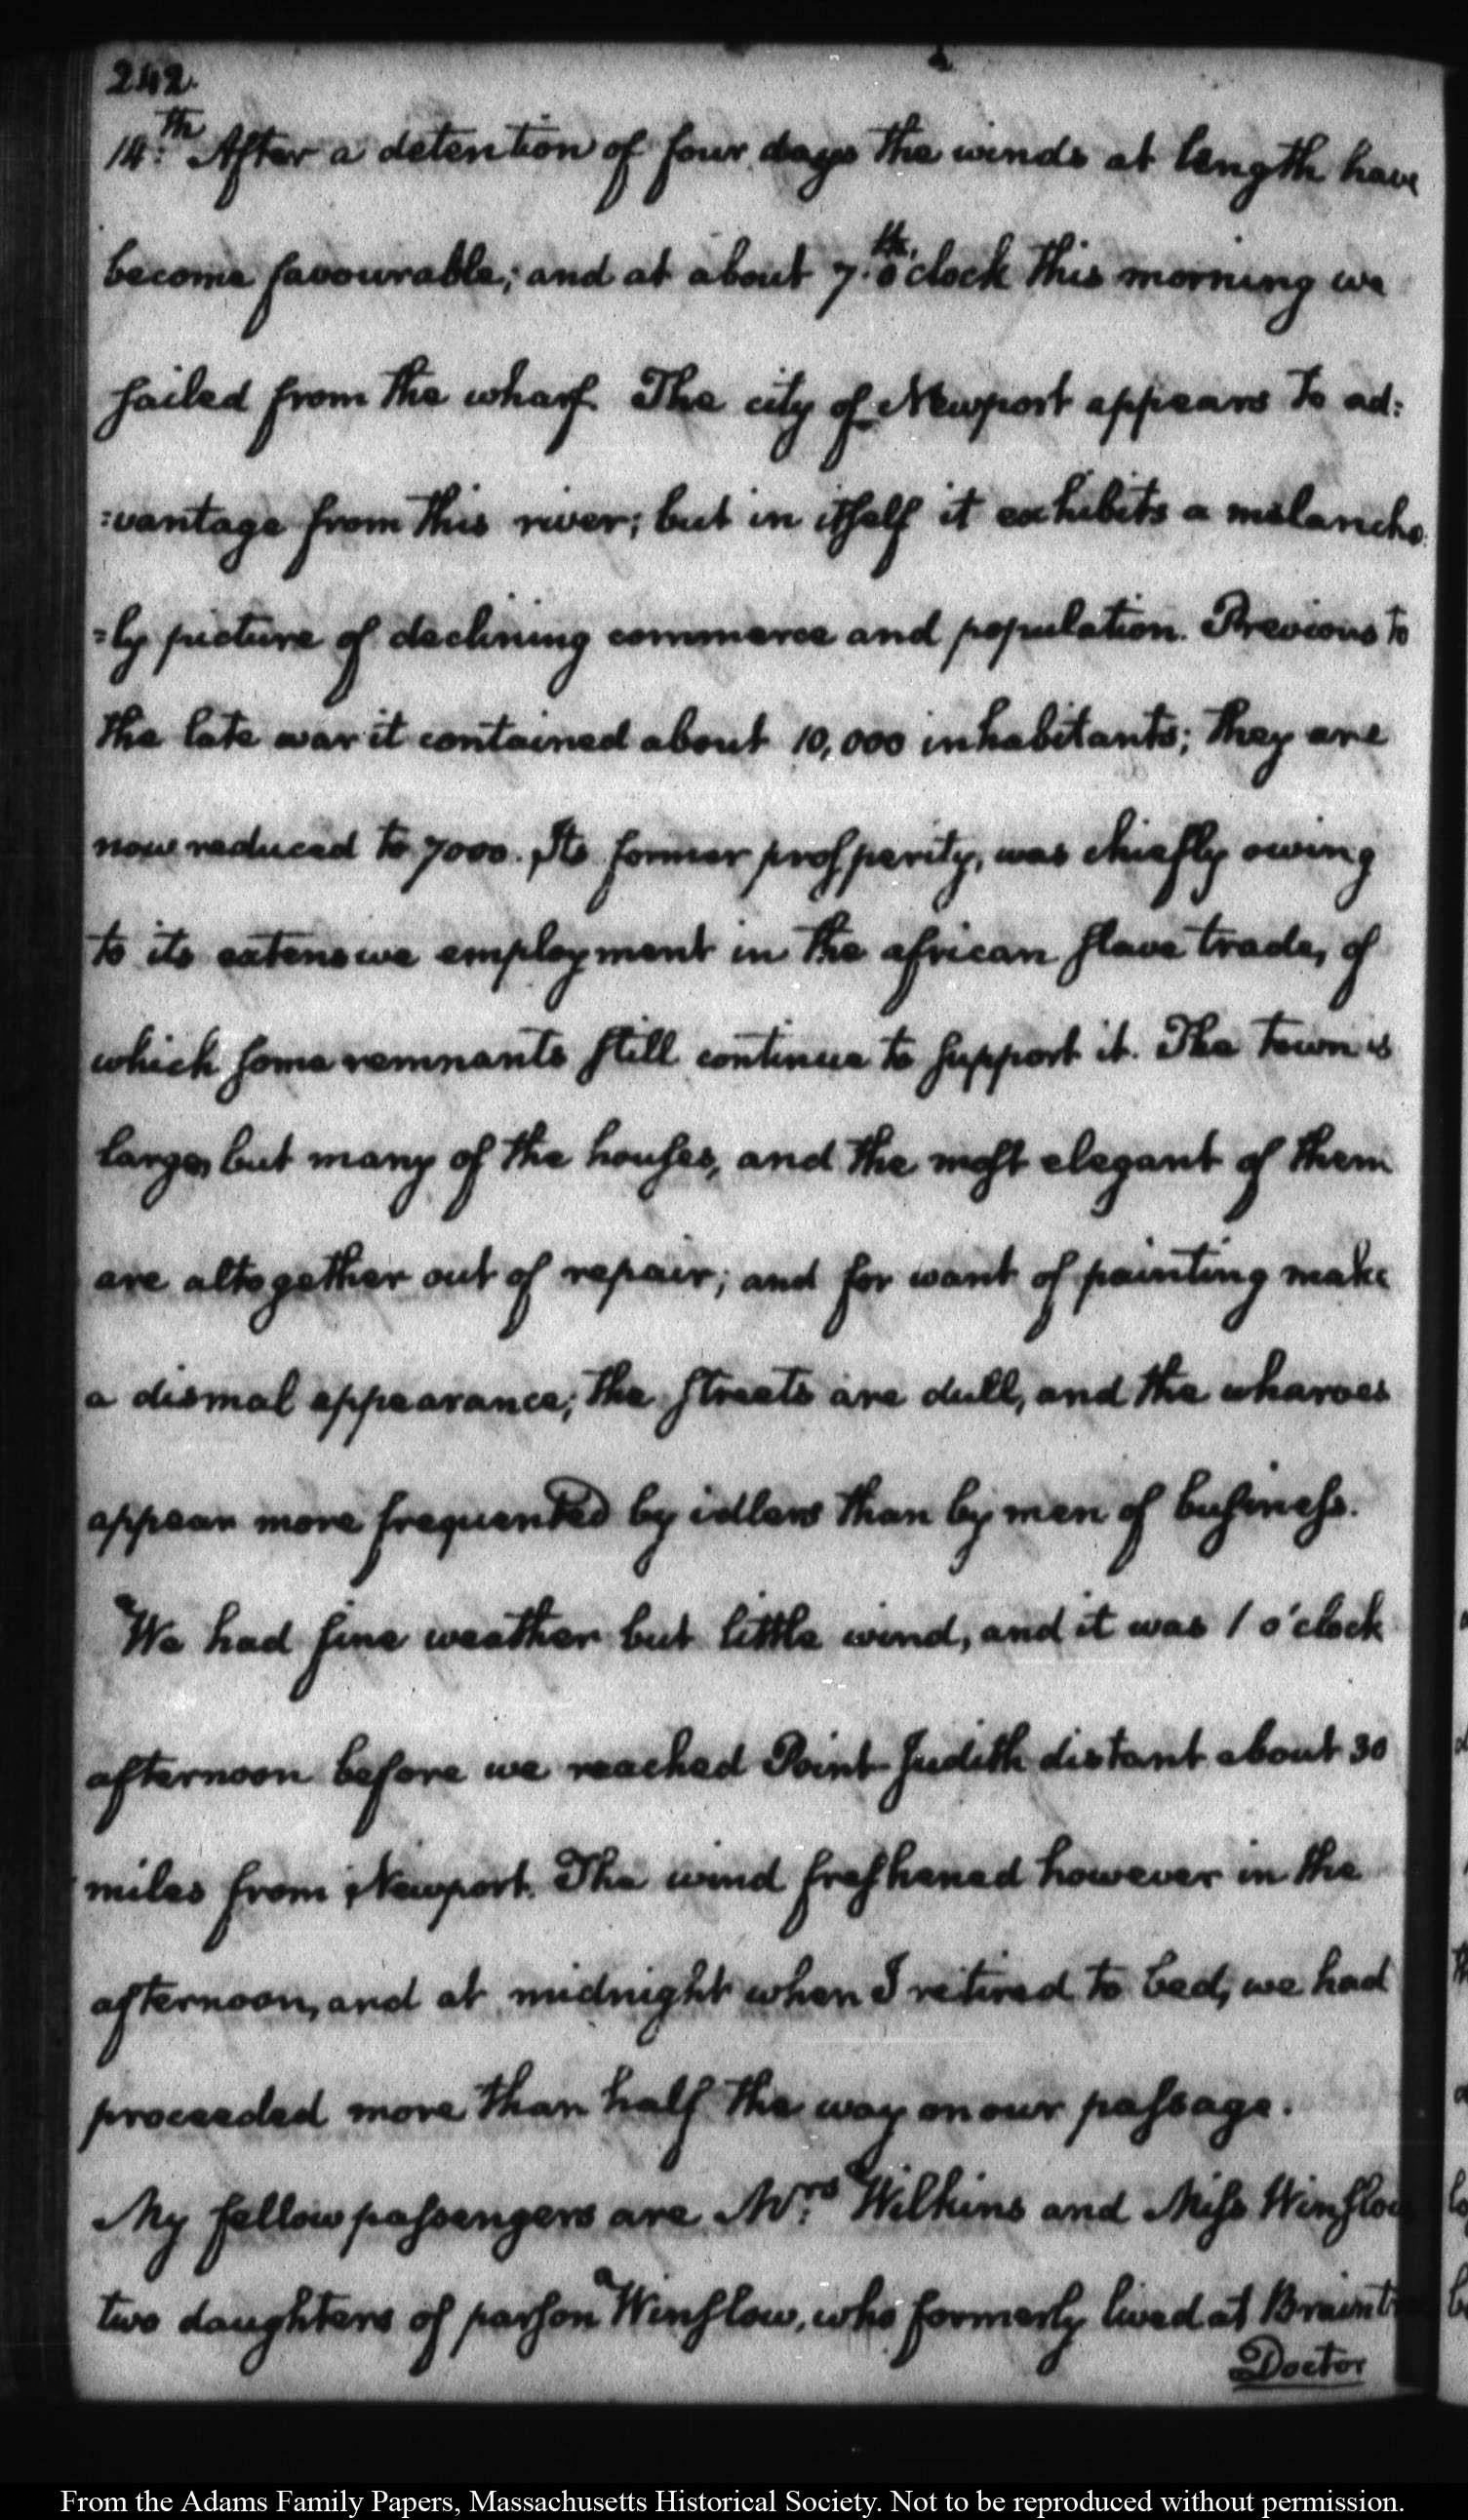 242.
14.th After a detention of four days the winds at length have
become favourable; and at about 7.th o'clock this morning we
sailed from the wharf. The city of Newport appears to ad:
:vantage from this river; but in itself it exhibits a melancho:
:ly picture of declining commerce and population. Previous to
the late war it contained about 10,000 inhabitants; they are
now reduced to 7000. Its former prosperity, was chiefly owing
to its extensive employment in the african slave trade, of
which some remnants still continue to support it. The town is
large, but many of the houses, and the most elegant of them
are altogether out of repair; and for want of painting make
a dismal appearance; the streets are dull, and the wharves
appear more frequented by idlers than by men of business.
We had fine weather but little wind, and it was 1 o'clock
afternoon before we reached Point Judith distant about 30
miles from Newport. The wind freshened however in the
afternoon, and at midnight when I retired to bed, we had
proceeded more than half the way on our passage.
My fellow passengers are Mrs. Wilkins and Miss Winslow
two daughters of parson Winslow, who formerly lived at Braint
Doctor
From the Adams Family Papers, Massachusetts Historical Society. Not to be reproduced without permission.